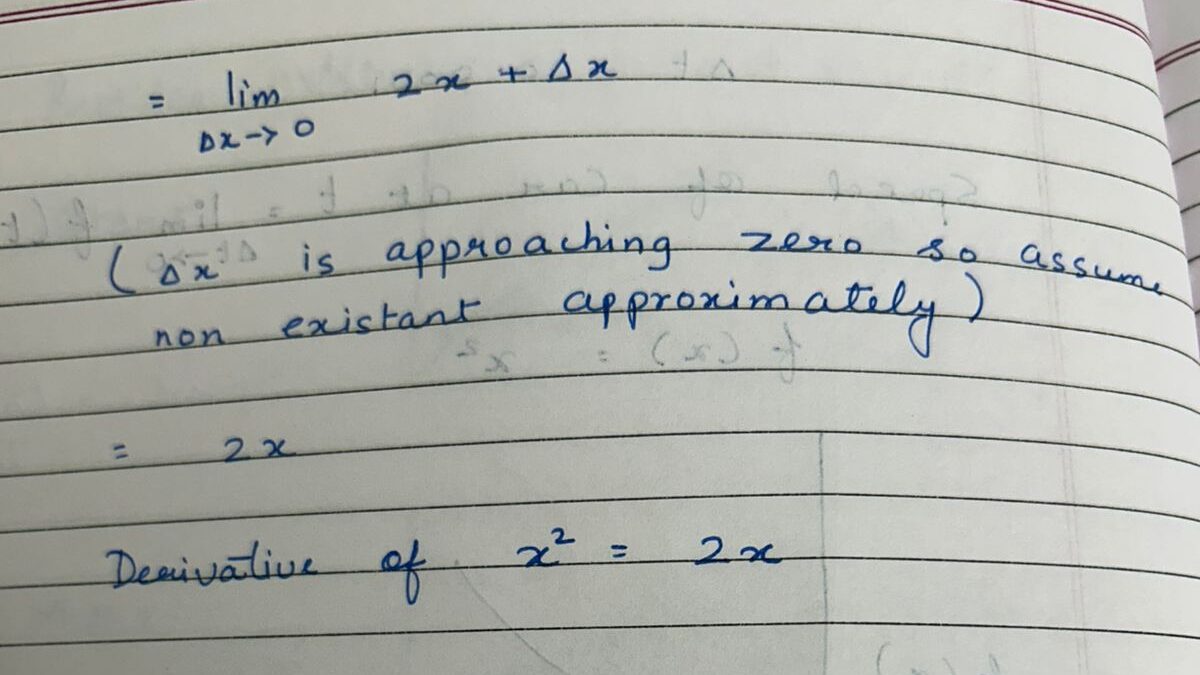 = lim 2x + Δx
Δx → 0
(Δx is approaching zero so assume
non existant approximately)
= 2x
Derivative of x² = 2x